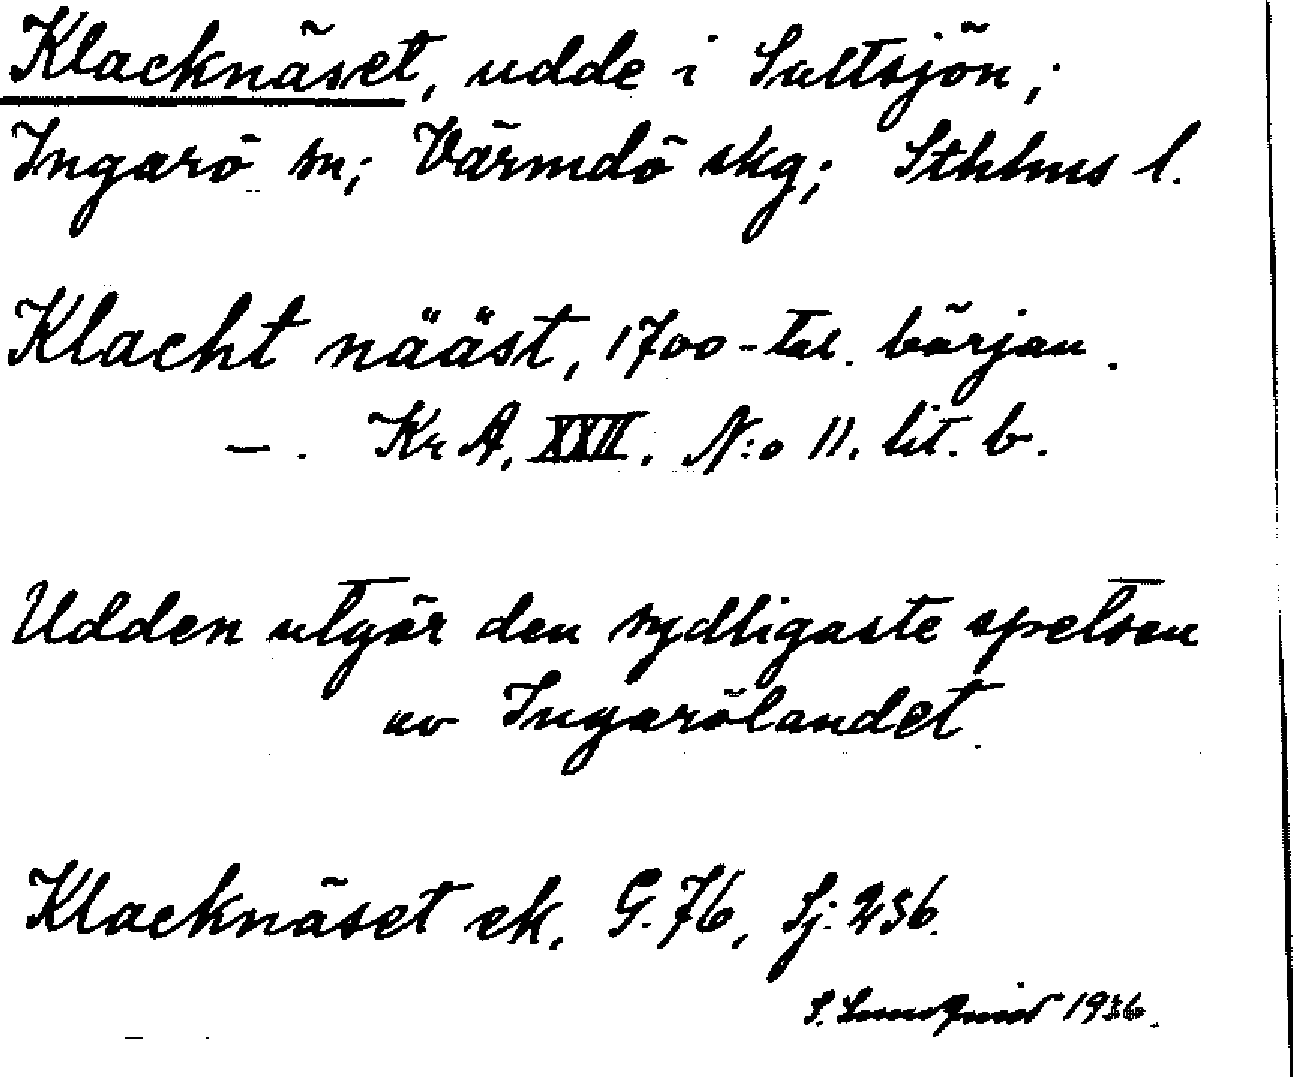 Klacknäset, udde i Saltsjön,
Ingarö sn; Värmdö skg; Sthlms l.
Klacht nääst, 1700-tal. början.
— . Kr A. XXII. N:o 11. lit. b.
Udden utgör den sydligaste spetsen
av Ingarölandet.
Klacknäset ek. G. 76, Sj: 236.
S. 1936.